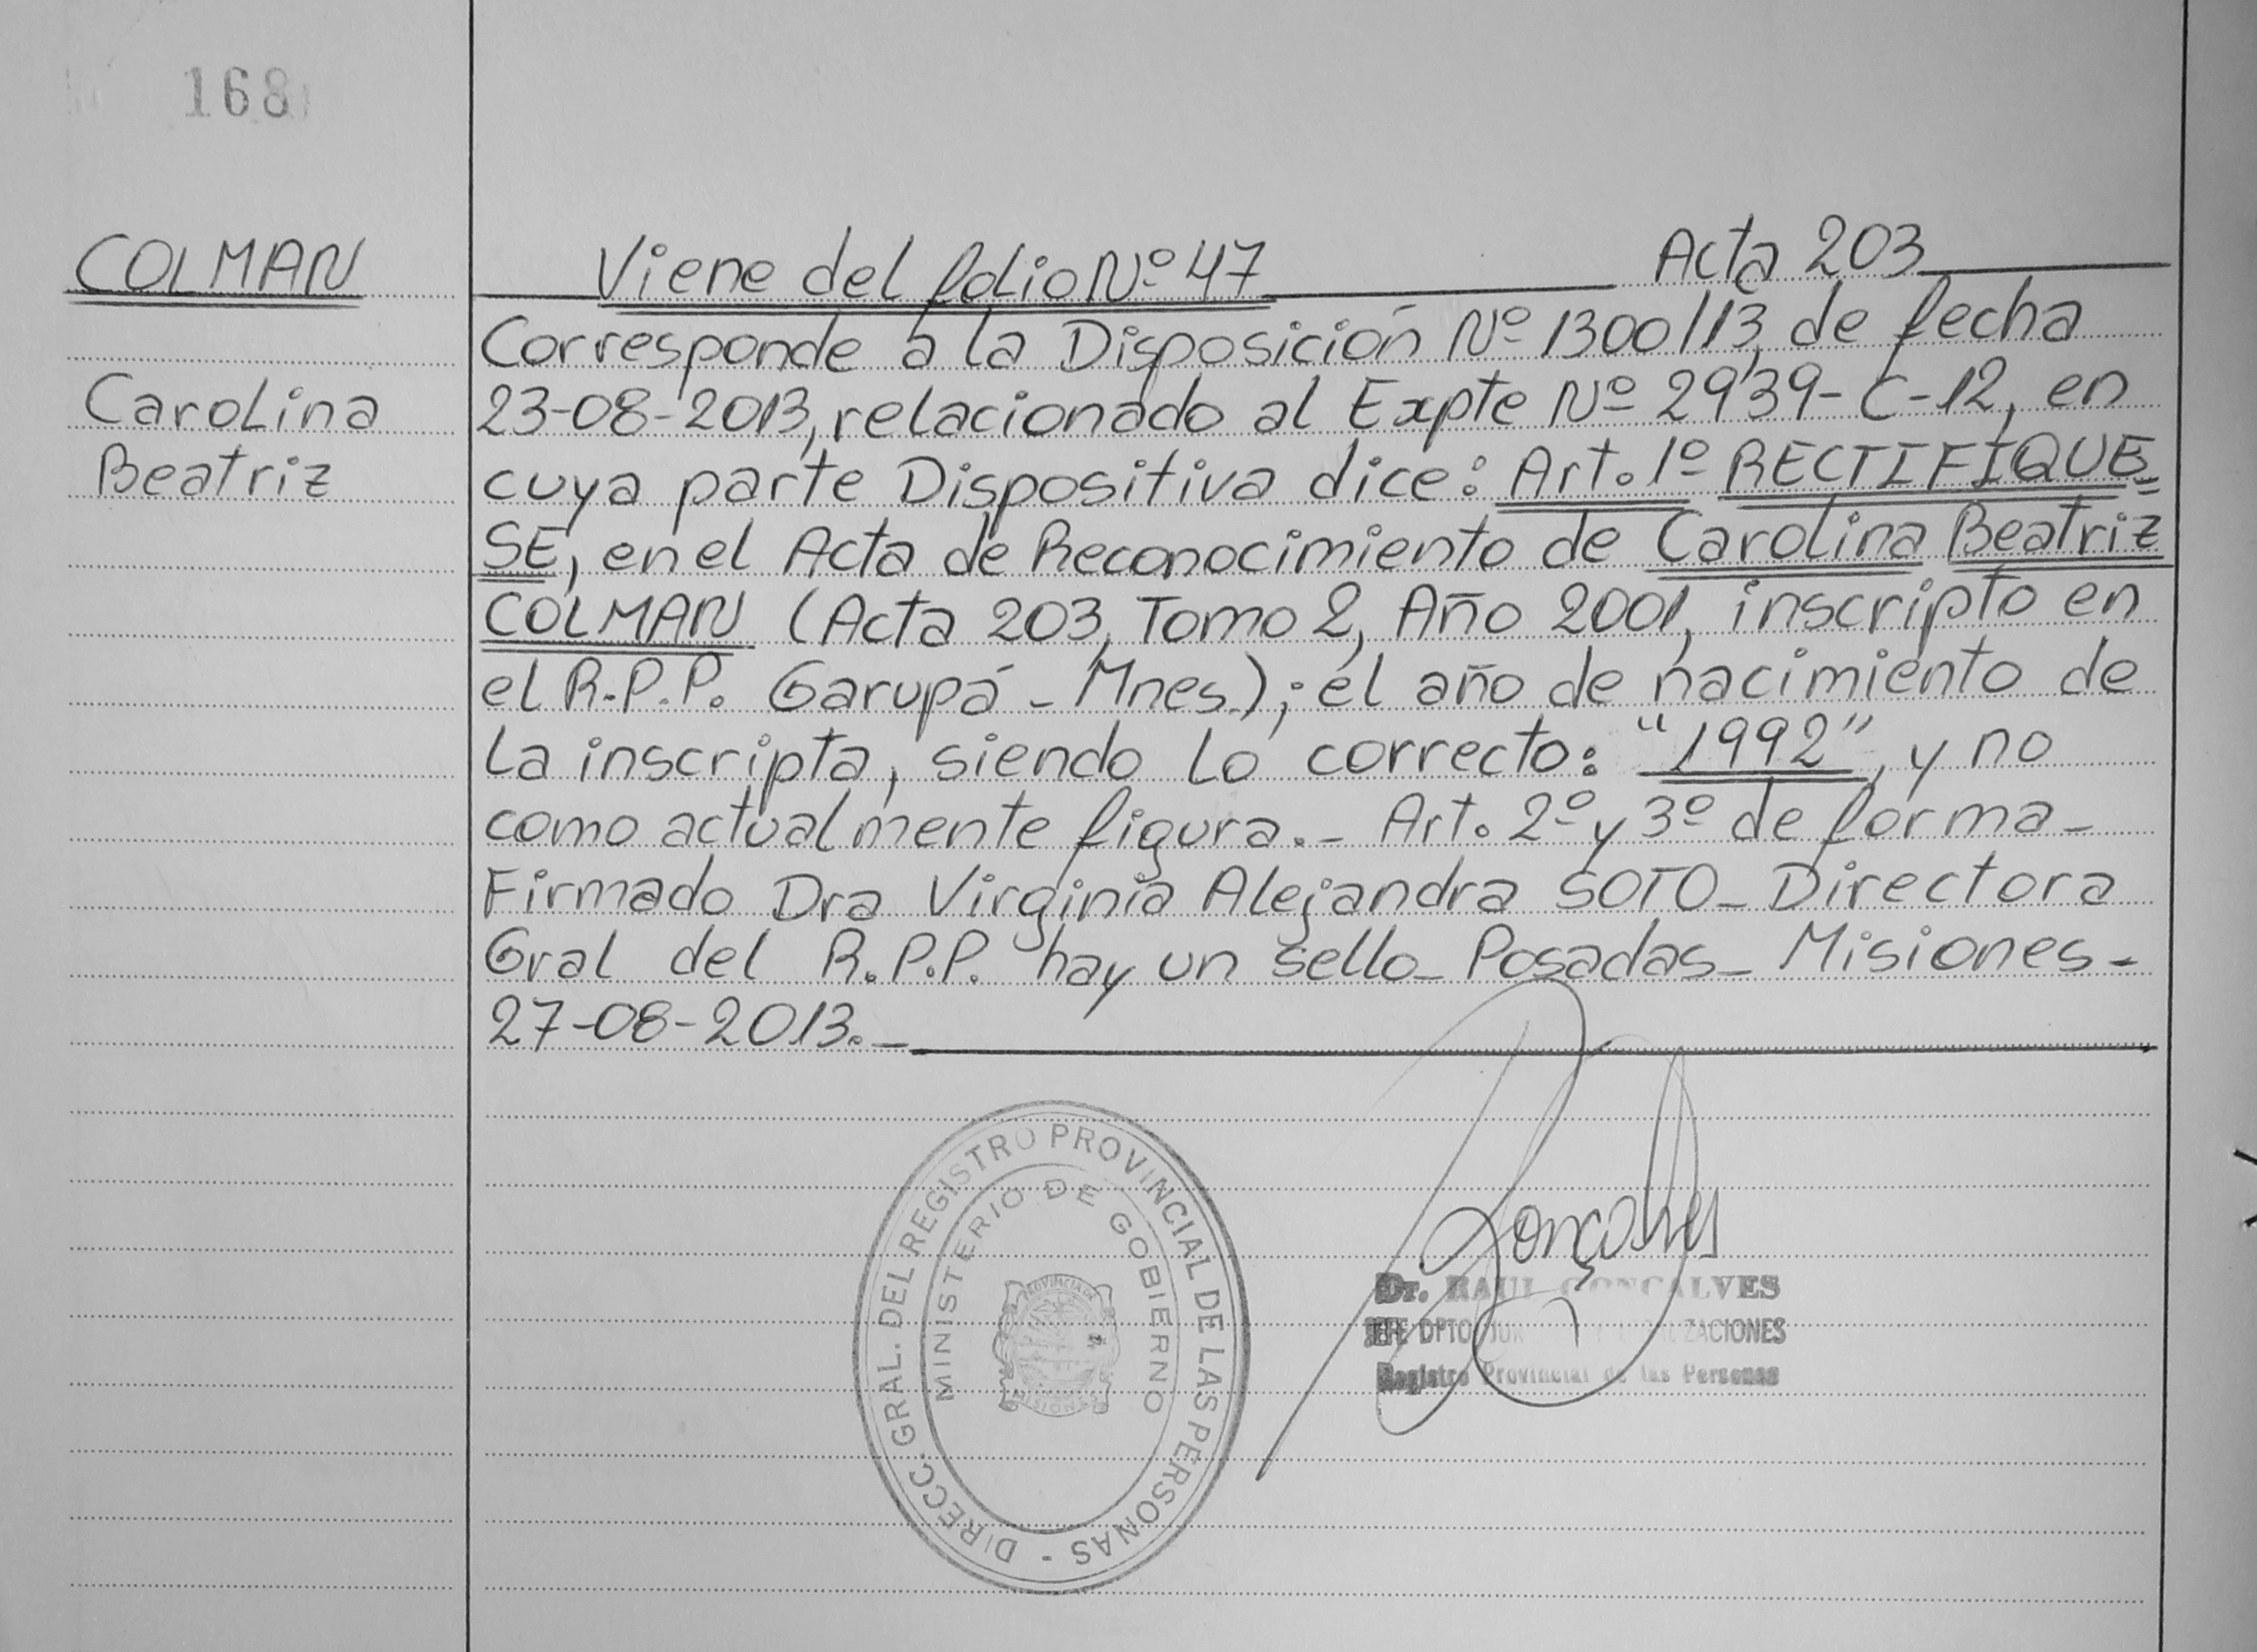 168
COLMAN
Carolina
Beatriz
Viene del folio Nº 47 Acta 203
Corresponde a la Disposición Nº 1300/13, de fecha
23-08-2013, relacionado al Expte Nº 2939-C-12, en
cuya parte Dispositiva dice: Art. 1º RECTIFIQUE=
SE, en el Acta de Reconocimiento de Carolina Beatriz
COLMAN (Acta 203, Tomo 2, Año 2001, inscripto en
el R.P.P. Garupá - Mnes.); el año de nacimiento de
la inscripta, siendo lo correcto: "1992", y no
como actualmente figura._ Art. 2º y 3º de forma_
Firmado Dra Virginia Alejandra SOTO_ Directora
Gral del R.P.P. hay un sello_ Posadas_ Misiones-
27-08-2013._
DIRECC. GRAL. DEL REGISTRO PROVINCIAL DE LAS PERSONAS -
MINISTERIO DE GOBIERNO
PROVINCIA DE
MISIONES
Gonçalves
Dr. RAUL GONCALVES
JEFE DPTO ZACIONES
Registro Provincial de las Personas